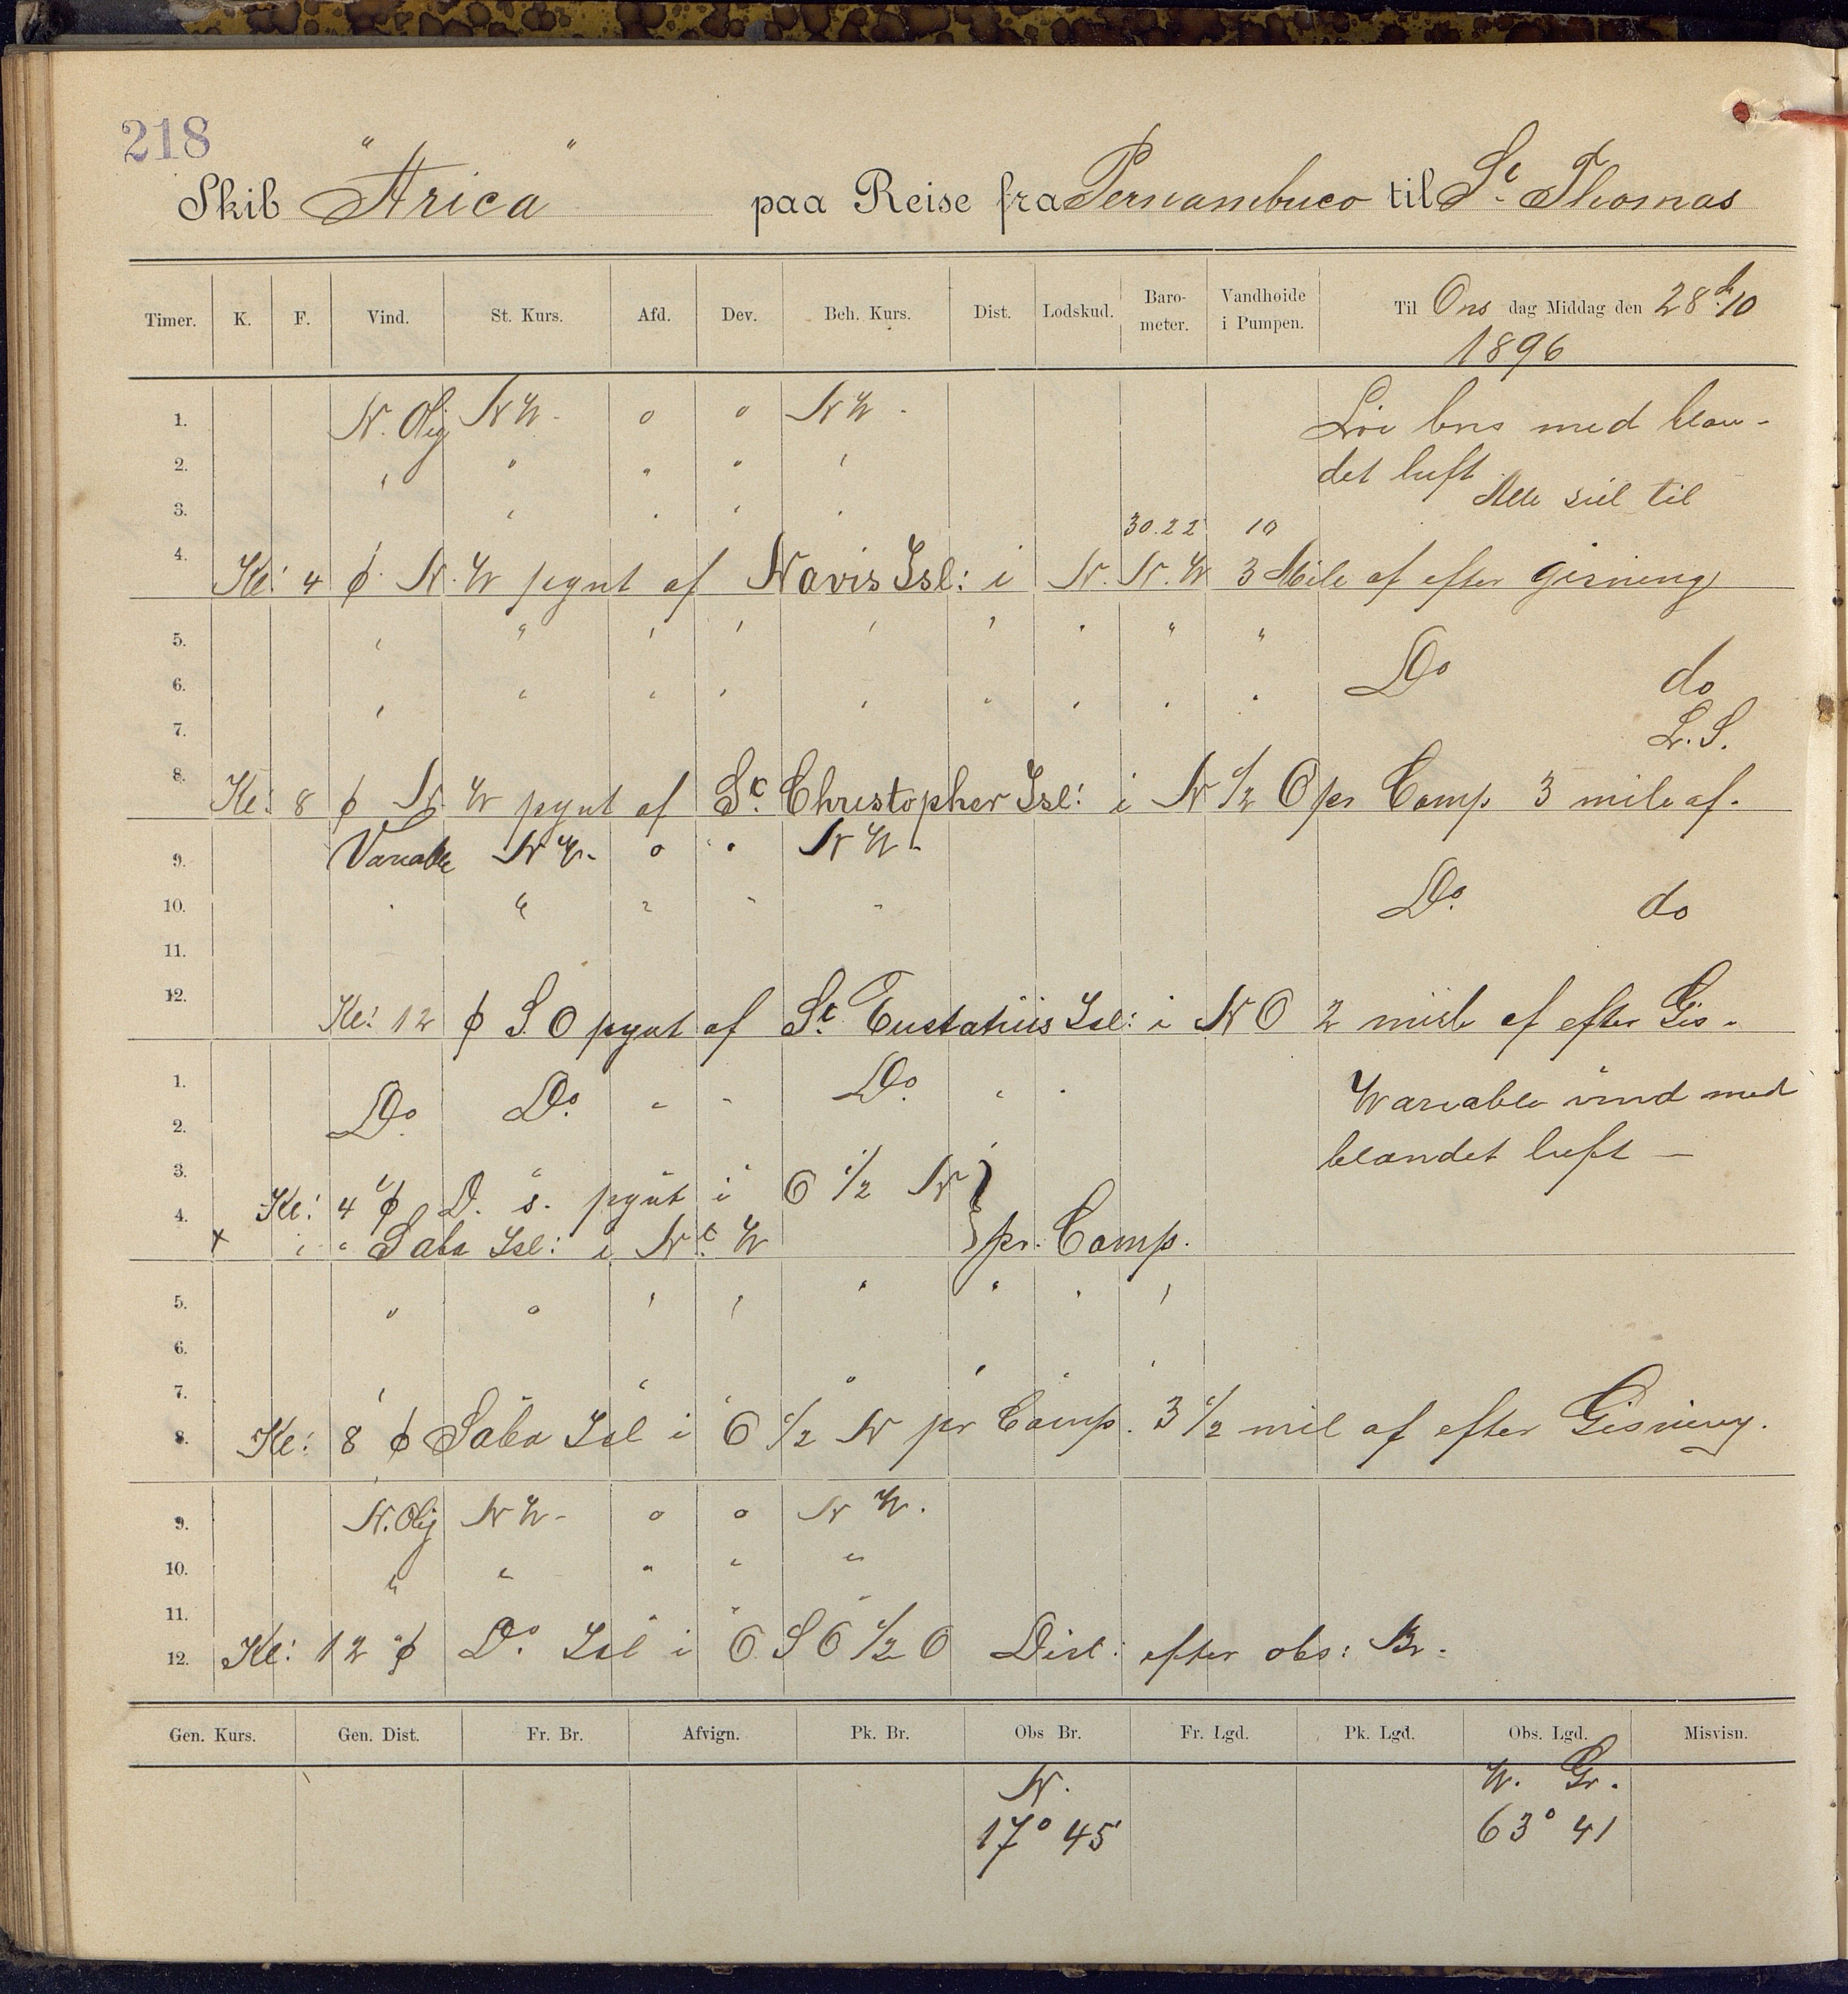 218
Skib "Arica" paa Reise fra Pernambuco til St. Thomas
Timer. K. F. Vind. St. Kurs. Afd. Dev. Beh. Kurs. Dist. Lodskud. Baro-meter. Vandhøide i Pumpen. Til Ons dag Middag den 28de/10
1896
1. N. Olig NW. o o NW. Lør bris med blan-
2. " " " " " det luft. Alle seil til
3. " " " "
30.22 10
4. Kl: 4 ϕ N.W pynt af Navis Isl: i N.N.W 3 Mile af efter gisning
5. " " " " " " " " "
Do do
6. " " " " " " " " "
7. L.S.
8. Kl: 8 ϕ N.W pynt af St. Christopher Isl: i N 1/2 O pr Comp 3 mile af.
9. Variable NW. o " NW.
10. " " " " " Do. do
11.
12. Kl: 12 ϕ S.O pynt af St. Eustatius Isl: i NO 2 mile af efter Gis.
1. Do. Do. " " Do. " " Wariable vind med
2. blandet luft —
3.
4. Kl: 4 ϕ D. s. pynt i O 1/2 N }
x " " Saba Isl: i Nt. W } pr. Comp.
5. " " " " " " " "
6.
7. " " " " " " "
8. Kl: 8 ϕ Saba Isl i O 1/2 N pr Comp. 3 1/2 mil af efter Gisning.
9. N. Olig NW. o o NW.
10. " " " " "
11. " " "
12. Kl: 12 ϕ Do. Isl i O S O 1/2 O Dist: efter obs: Br.
Gen. Kurs. Gen. Dist. Fr. Br. Afvign. Pk. Br. Obs Br. Fr. Lgd. Pk. Lgd. Obs. Lgd. Misvisn.
N. W. Gr.
17° 45' 63° 41